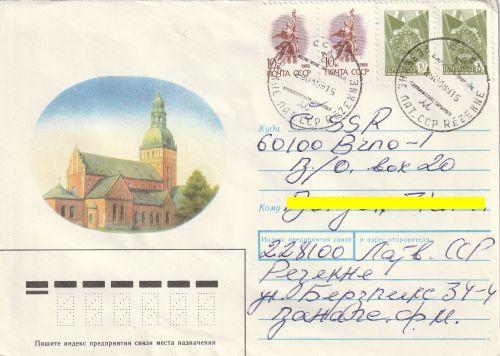 10к 1988
ПОЧТА СССР
10к 1988
ПОЧТА СССР
ЛАТ. ССР REZEKNE
ЛАТ. ССР REZEKNE
Куда ČSSR
60100 Brno-1
P/O. box 20
Кому
Индекс предприятия связи и адрес отправителя
228100 Латв. ССР
Резекне
ул. Берзпилс 34-4
Пишите индекс предприятия связи места назначения